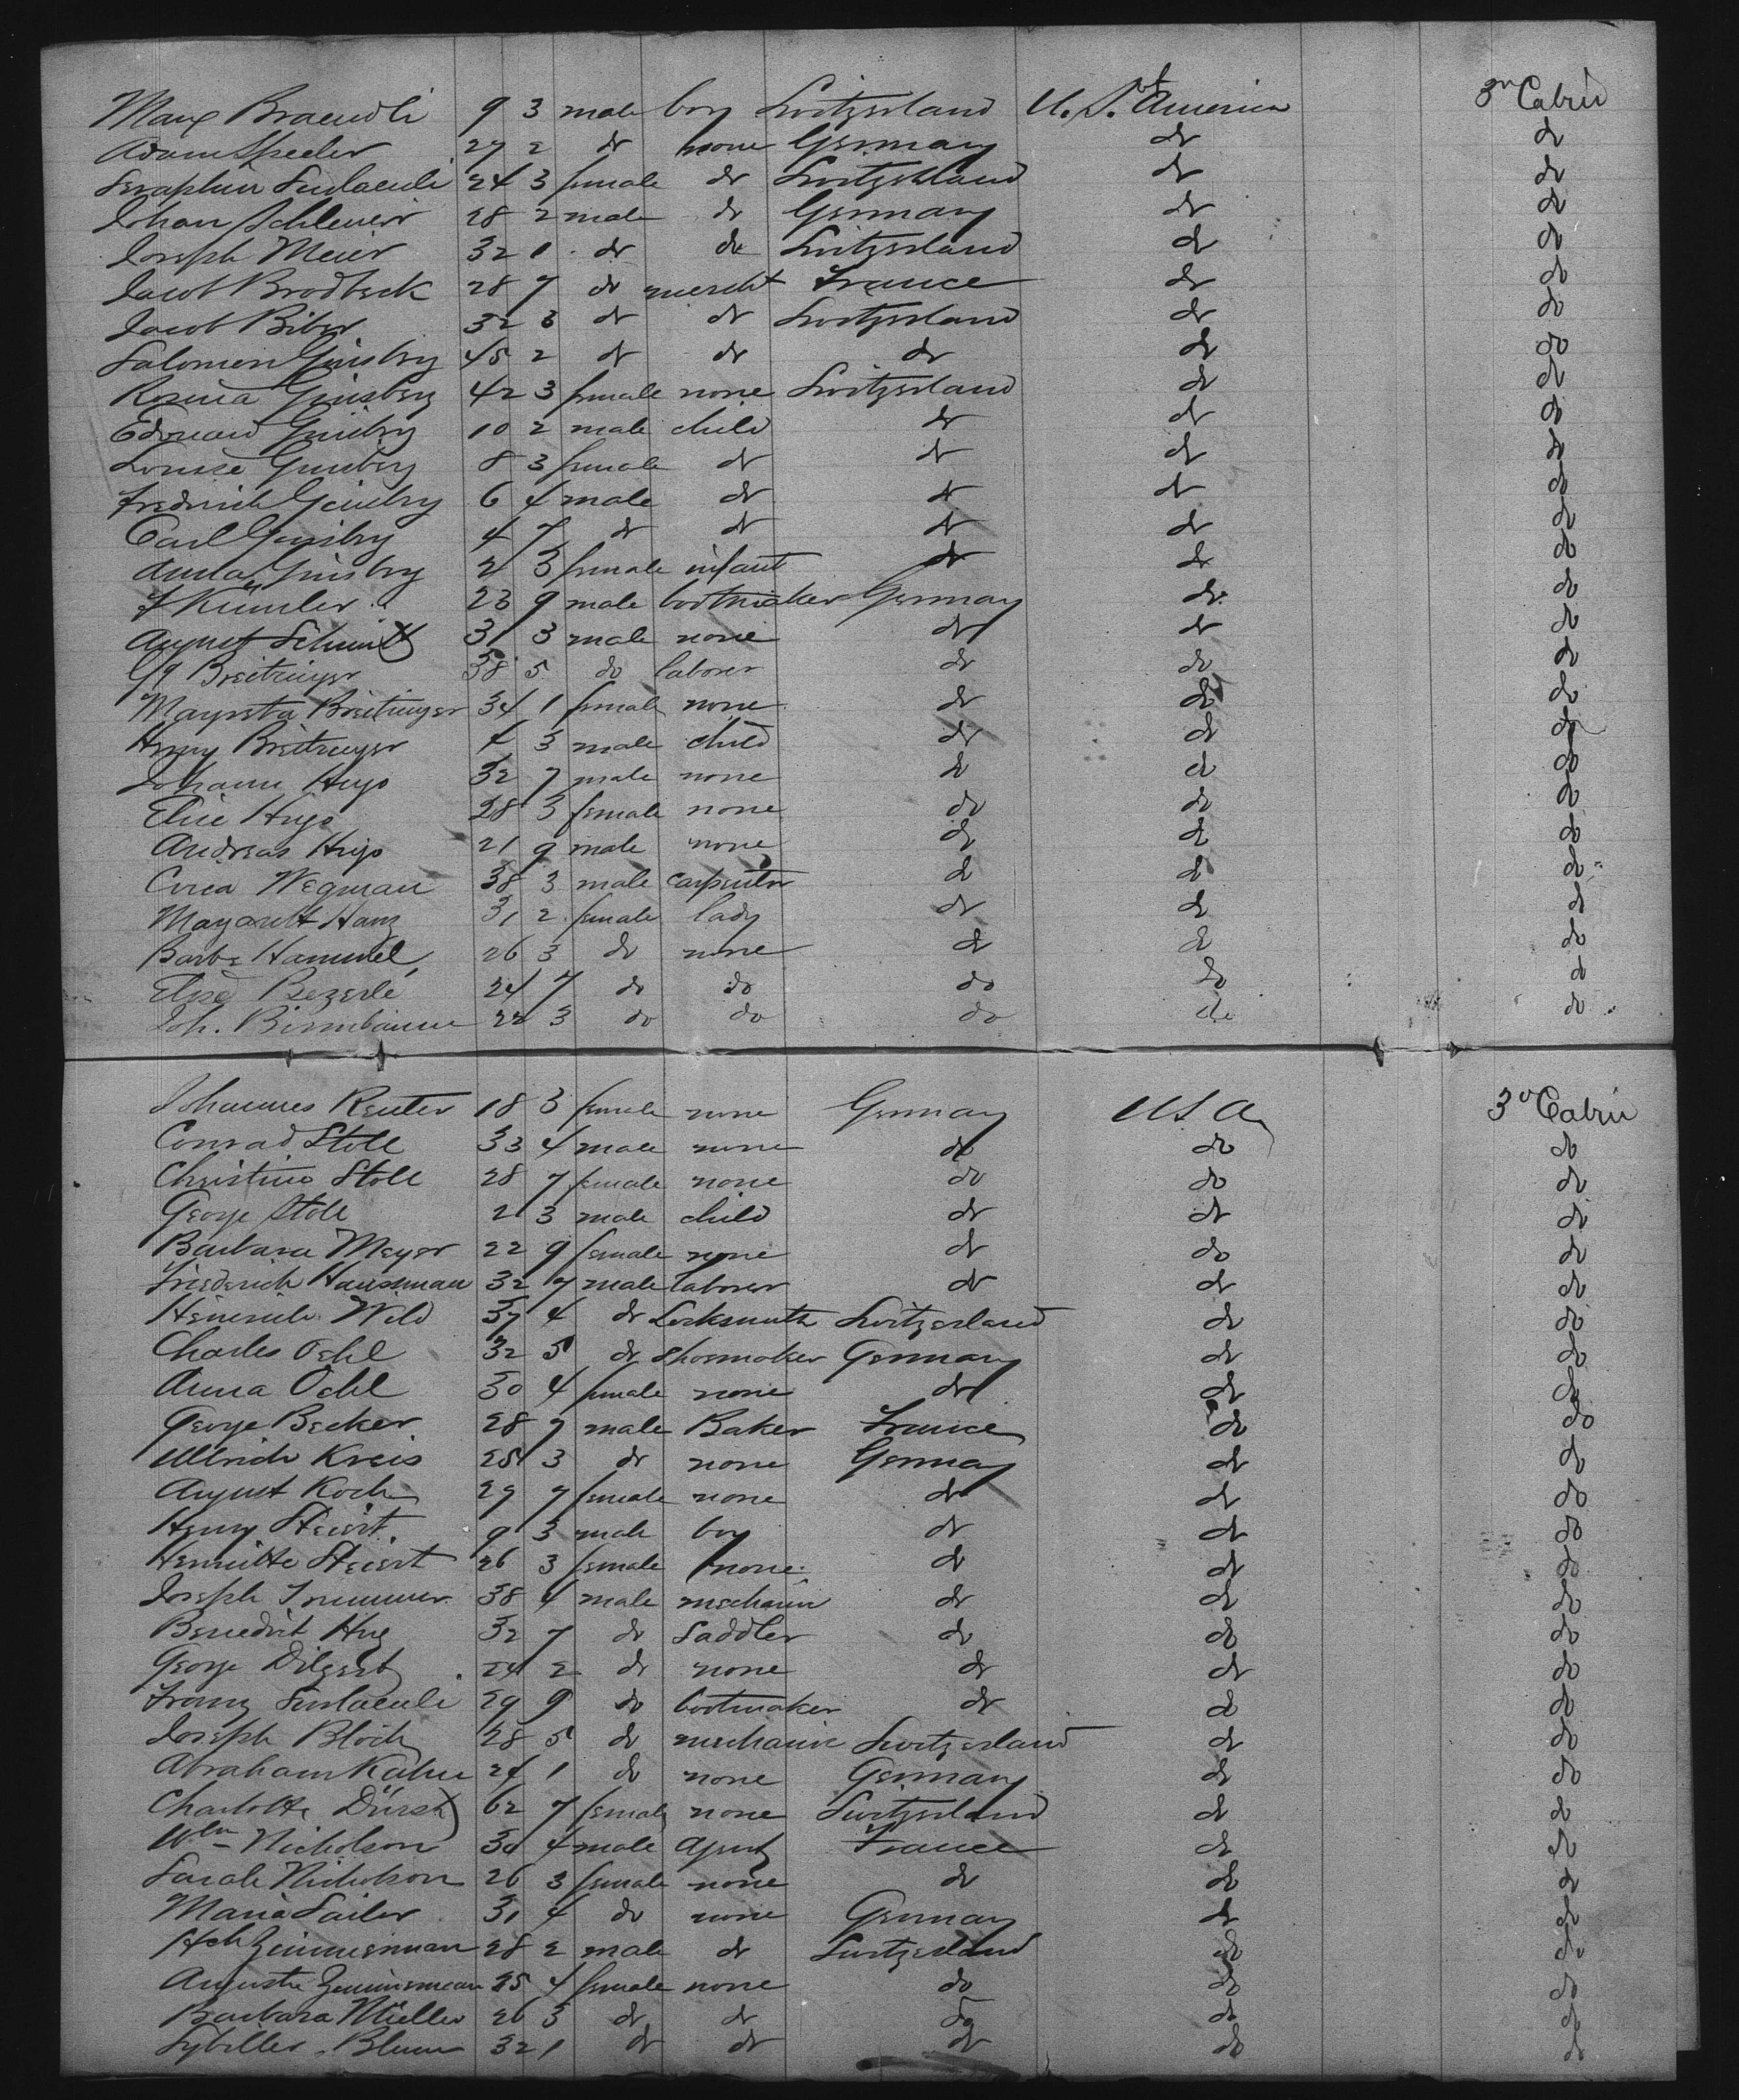 Max Braendli 9 3 male boy Switzerland U. S. of America 3rd Cabin
Adam Speeler 27 2 do none Germany do do
Seraphin 24 3 female do Switzerland do do
Johan Schleuer 28 2 male do Germany do do
Joseph Meier 32 1 do do Switzerland do do
Jacob Brodbeck 28 7 do mercht France do do
Jacob Biber 32 3 do do Switzerland do do
Salomon Ginsbrg 45 2 do do do do do
Rosina Ginsberg 42 3 female none Switzerland do do
Edouard Ginsbrg 10 2 male child do do do
Louise Ginsberg 8 3 female do do do do
Frederick Ginsbrg 6 4 male do do do do
Carl Ginsbrg 4 7 do do do do do
Anna Ginsbrg 2 3 female infant do do do
F Kümler 23 9 male bootmaker Germany do do
August Schmitt 31 3 male none do do do
Breitinger 38 5 do laborer do do do
Margreta Breitinger 34 1 female none do do do
Henry Breitinger 4 3 male child do do do
Johann Hugo 32 7 male none do do do
Elise Hugo 28 3 female none do do do
Andreas Hugo 21 9 male none do do do
Wegman 38 3 male carpenter do do do
Margareth Hanz 31 2 female lady do do do
Barba Hammel 26 3 do none do do do
Elise Bezerlé 24 7 do do do do do
Joh. Birnbaum 22 3 do do do do do
Johannes Reuter 18 3 female none Germany U S A 3d Cabin
Conrad Stoll 33 4 male none do do do
Christine Stoll 28 7 female none do do do
George Stoll 2 3 male child do do do
Barbara Meyer 22 9 female none do do do
Friederich Hausman 32 7 male laborer do do do
Heinrich Wild 37 4 do Locksmith Switzerland do do
Charles Oehl 32 5 do Shoemaker Germany do do
Anna Oehl 30 4 female none do do do
George Becker 28 7 male Baker France do do
Ullrich Kreis 25 3 do none Germany do do
August Koch 29 7 female none do do do
Henry Steiert 9 3 male boy do do do
Henriette Steiert 26 3 female none do do do
Joseph Trummer 38 4 male mechanic do do do
Benedict Hug 32 7 do Saddler do do do
George Dilgert 24 2 do none do do do
Franz 29 9 do bootmaker do do do
Joseph Bloch 28 5 do mechanic Switzerland do do
Abraham Kahn 24 1 do none Germany do do
Charlotte Dürst 62 7 female none Switzerland do do
Wlm Nicholson 30 4 male Agent France do do
Sarah Nicholson 26 3 female none do do do
Maria Sailer 31 4 do none Germany do do
Hch Zimmerman 28 2 male do Switzerland do do
Augusta Zimmerman 25 4 female none do do do
Barbara Müller 26 3 do do do do do
Sybiller Blum 32 1 do do do do do